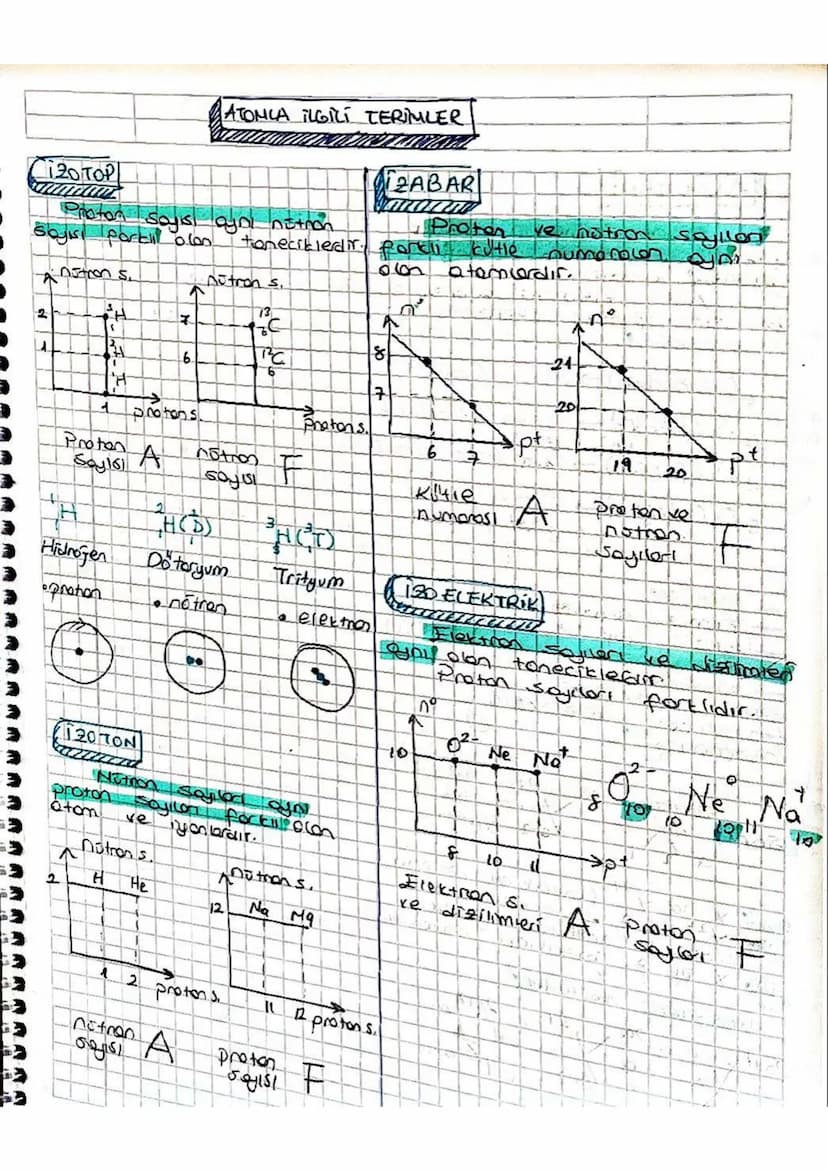 ATOMLA İLGİLİ TERİMLER
İZOTOP
Proton sayısı aynı nötron
sayısı farklı olan taneciklerdir.
nötron s.
2
1
³₁H
²₁H
¹₁H
1
proton s.
nötron s.
7
6
¹³₆C
¹²₆C
proton s.
Proton
sayısı A
nötron
sayısı F
¹₁H
²₁H(²₁D)
³₁H(³₁T)
Hidrojen
Dötoryum
Trityum
•proton
• nötron
• elektron
İZOTON
Nötron sayıları aynı
proton sayıları farklı olan
atom ve iyonlardır.
nötron s.
2
H
He
1
2
proton s.
nötron s.
12
Na
Mg
11
12
proton s.
nötron
sayısı A
proton
sayısı F
İZABAR
Proton ve nötron sayıları
farklı kütle numaraları aynı
olan atomlardır.
n⁰
8
7
6
7
p⁺
n⁰
21
20
19
20
p⁺
Kütle
numarası A
proton ve
nötron
sayıları F
İZO ELEKTRİK
Elektron sayıları ve dizilimleri
aynı olan taneciklerdir.
Proton sayıları farklıdır.
n⁰
10
O²⁻
Ne
Na⁺
8
10
11
p⁺
₈O²⁻ 10
₁₀Ne⁰ 10
₁₁Na⁺ 10
Elektron s.
ve dizilimleri A
proton
sayıları F